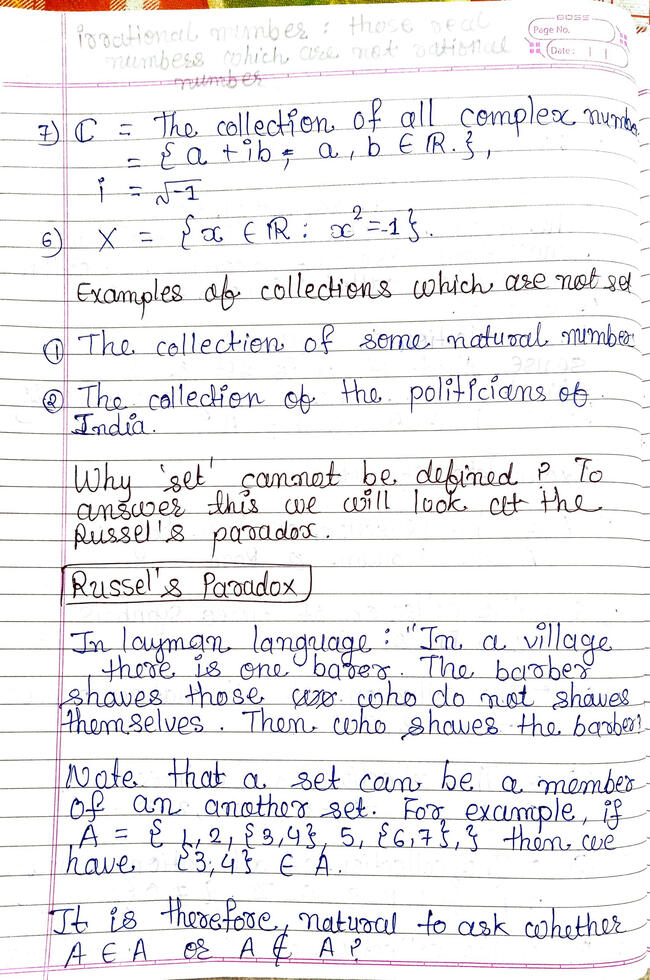 BOSS
Page No.
Date: | |
irrational number : those real
numbers which are not rational
number
7) ℂ = The collection of all complex number
= {a + ib ; a, b ∈ ℝ.},
i = √-1
6) X = {x ∈ ℝ : x² = -1}.
Examples of collections which are not set
① The collection of some natural number
② The collection of the politicians of
India.
Why 'set' cannot be defined ? To
answer this we will look at the
Russel's paradox.
Russel's Paradox
In layman language : "In a village
there is one baber. The barber
shaves those who do not shaves
themselves. Then who shaves the barber?
Note that a set can be a member
of an another set. For example, if
A = { 1, 2, {3,4}, 5, {6,7}, } then we
have {3,4} ∈ A.
It is therefore, natural to ask whether
A ∈ A or A ∉ A ?